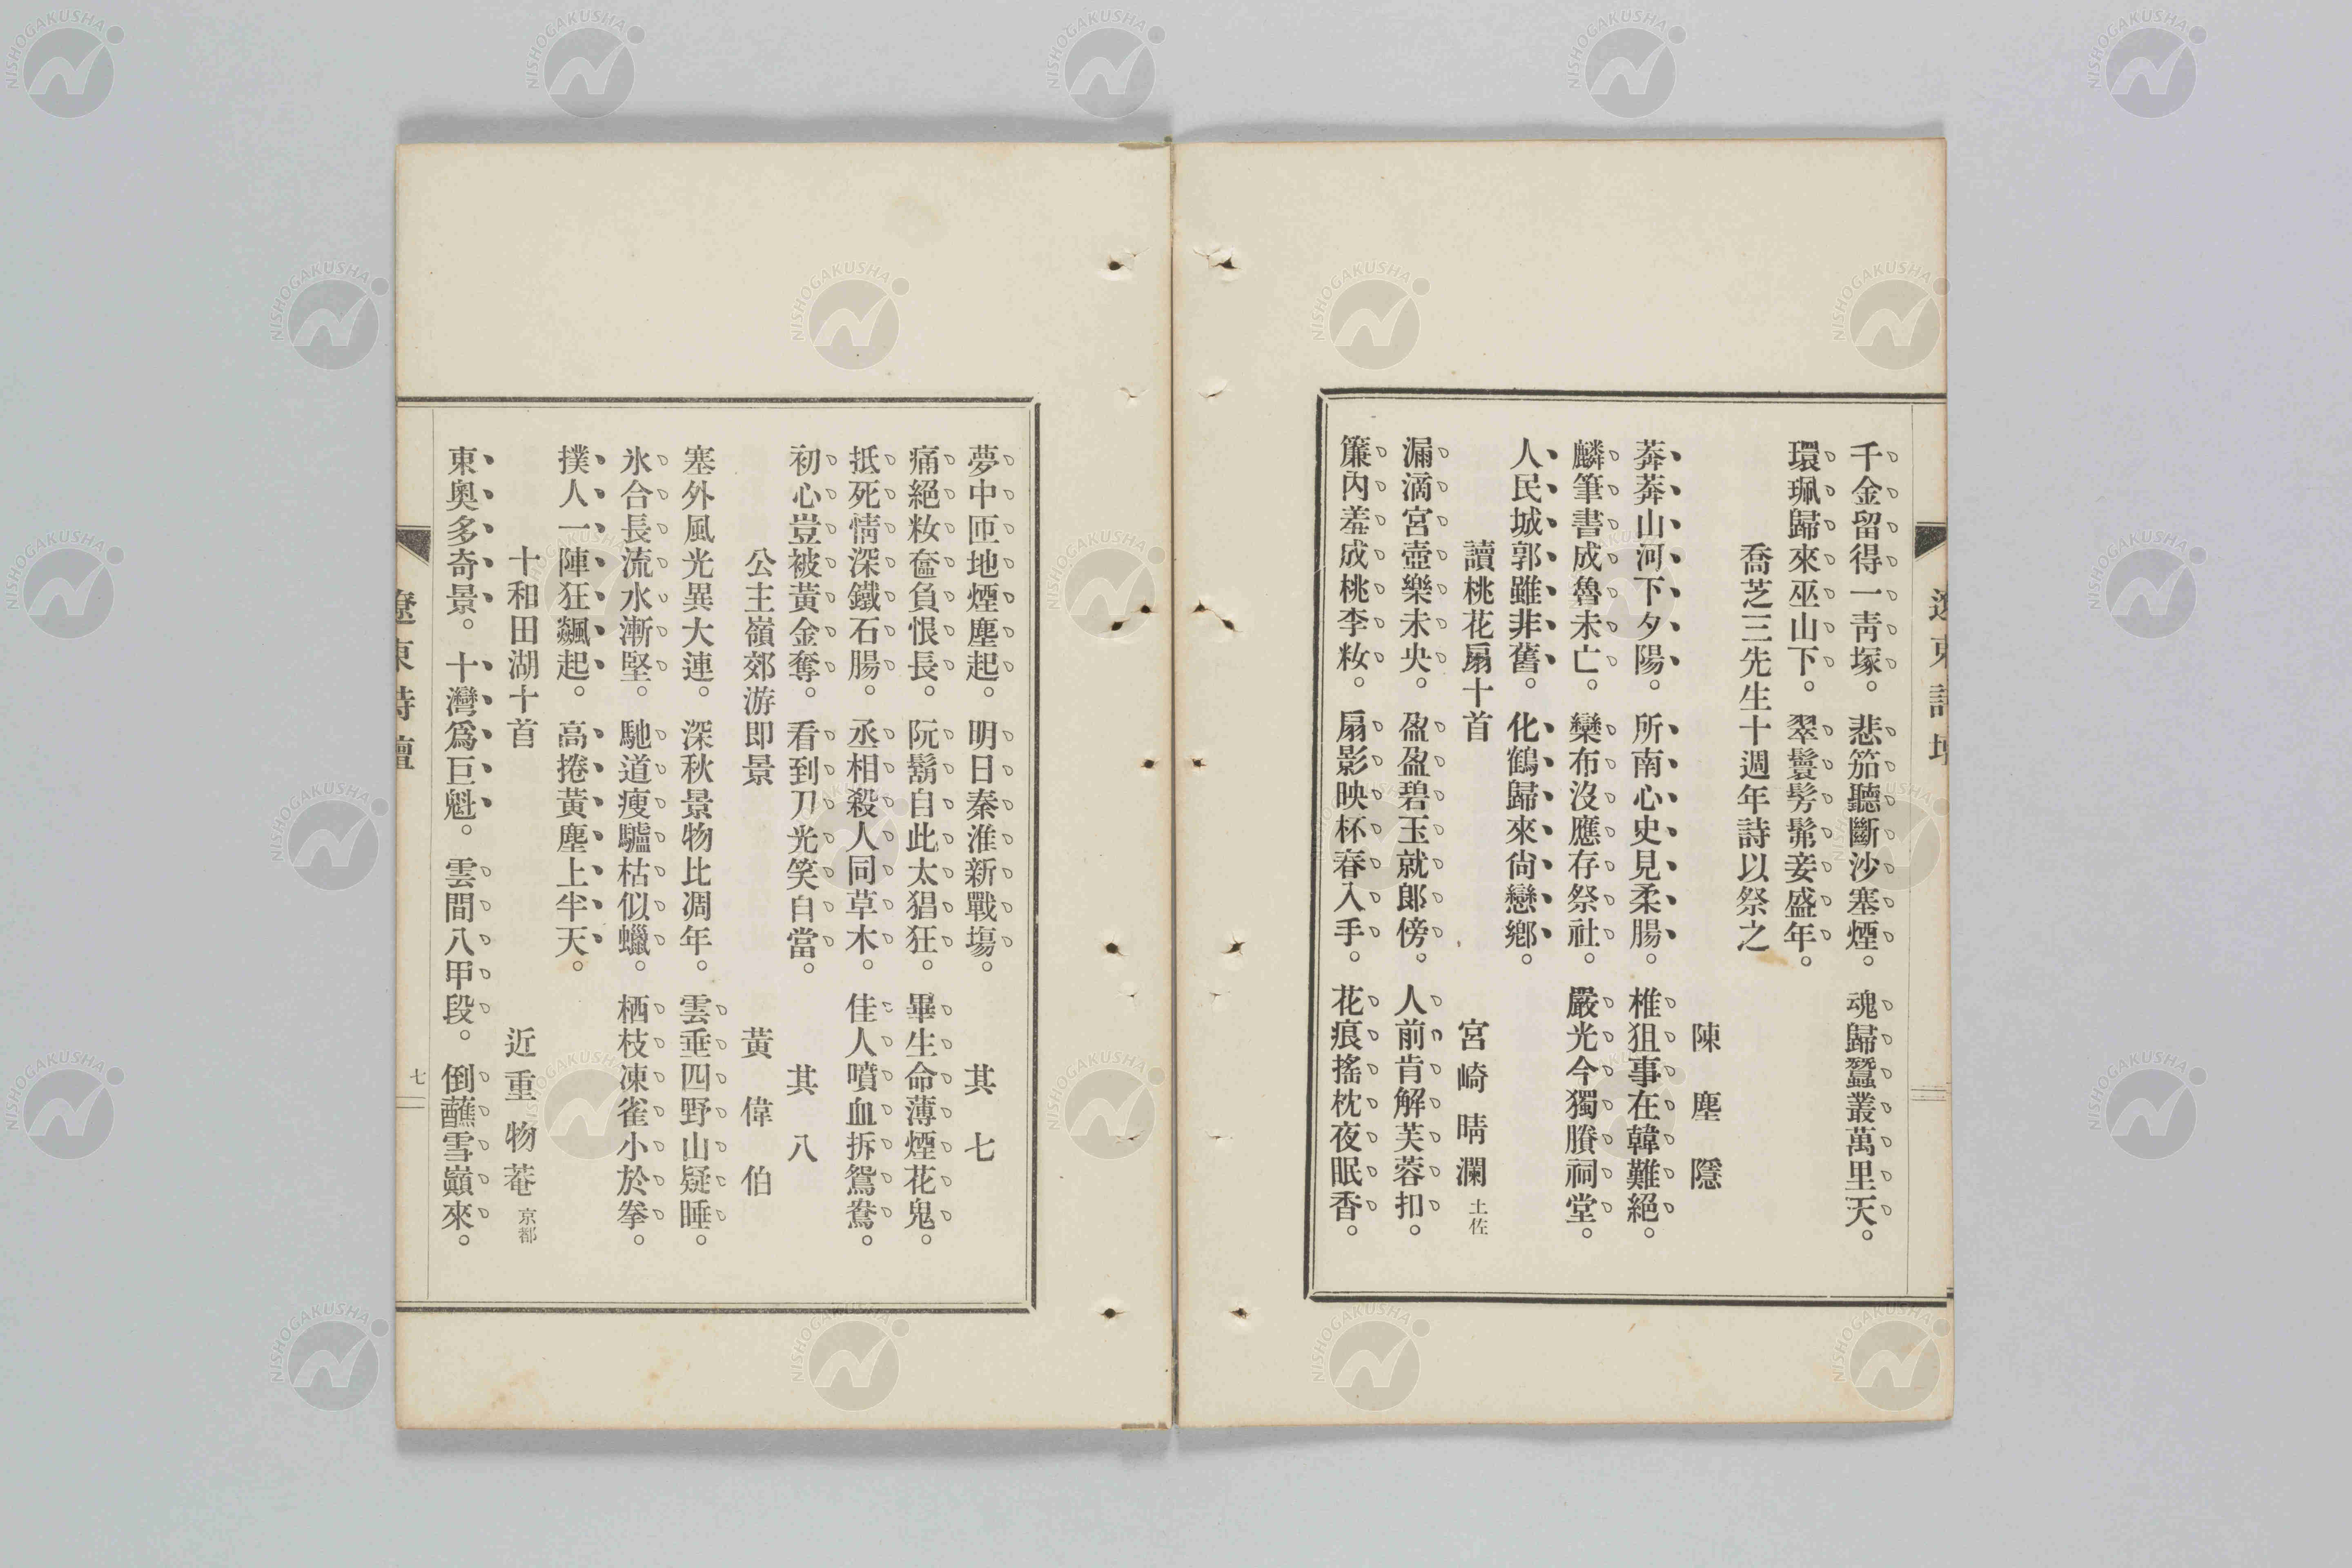 千金留得一靑塚。悲笳聽斷沙塞煙。魂歸蠶叢萬里天。
環珮歸來巫山下。翠鬟髣髴妾盛年。
喬芝三先生十週年詩以祭之
陳塵隱
莽莽山河下夕陽。所南心史見柔腸。椎狙事在韓難絕。
麟筆書成魯未亡。欒布沒應存祭社。嚴光今獨賸祠堂。
人民城郭雖非舊。化鶴歸來尙戀鄕。
讀桃花扇十首
宮崎晴瀾 土佐
漏滴宮壺樂未央。盈盈碧玉就郞傍。人前肯解芙蓉扣。
簾內羞成桃李妝。扇影映杯春入手。花痕搖枕夜眠香。
夢中匝地煙塵起。明日秦淮新戰塲。 其七
痛絕妝奩負恨長。阮鬍自此太猖狂。畢生命薄煙花鬼。
抵死情深鐵石腸。丞相殺人同草木。佳人噴血拆鴛鴦。
初心豈被黃金奪。看到刀光笑自當。 其八
公主嶺郊游即景
黃偉伯
塞外風光異大連。深秋景物比凋年。雲垂四野山疑睡。
氷合長流水漸堅。馳道瘦驢枯似蠟。栖枝凍雀小於拳。
撲人一陣狂飆起。高捲黃塵上半天。
十和田湖十首
近重物菴 京都
東奧多奇景。十灣爲巨魁。雲間八甲段。倒蘸雪巓來。
遼東詩壇
七
NISHOGAKUSHA